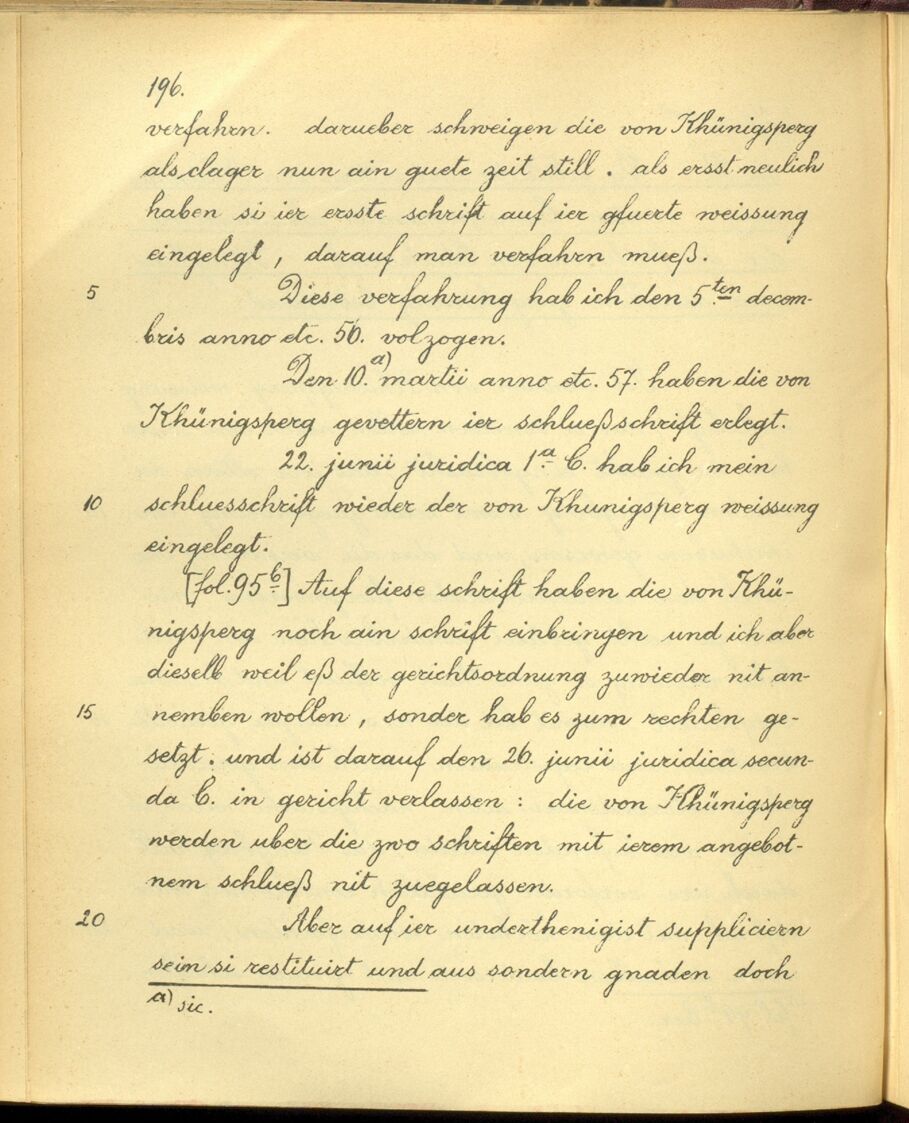 196.
verfahrn. darueber schweigen die von Khünigsperg
als clager nun ain guete zeit still. als ersst neulich
haben si ier ersste schrift auf ier gfuerte weissung
eingelegt, darauf man verfahrn mueß.
5 Diese verfahrung hab ich den 5ten decem-
bris anno etc. 56. volzogen.
Den 10. a) martii anno etc. 57. haben die von
Khünigsperg gevettern ier schlueßschrift erlegt.
22. junii juridica 1a C. hab ich mein
10 schluesschrift wieder der von Khunigsperg weissung
eingelegt.
[fol. 95b] Auf diese schrift haben die von Khü-
nigsperg noch ain schrift einbringen und ich aber
dieselb weil eß der gerichtsordnung zuwieder nit an-
15 nemben wollen, sonder hab es zum rechten ge-
setzt. und ist darauf den 26. junii juridica secun-
da C. in gericht verlassen: die von Khünigsperg
werden uber die zwo schriften mit ierem angebot-
nem schlueß nit zuegelassen.
20 Aber auf ier underthenigist suppliciern
sein si restituirt und aus sondern gnaden doch
a) sic.